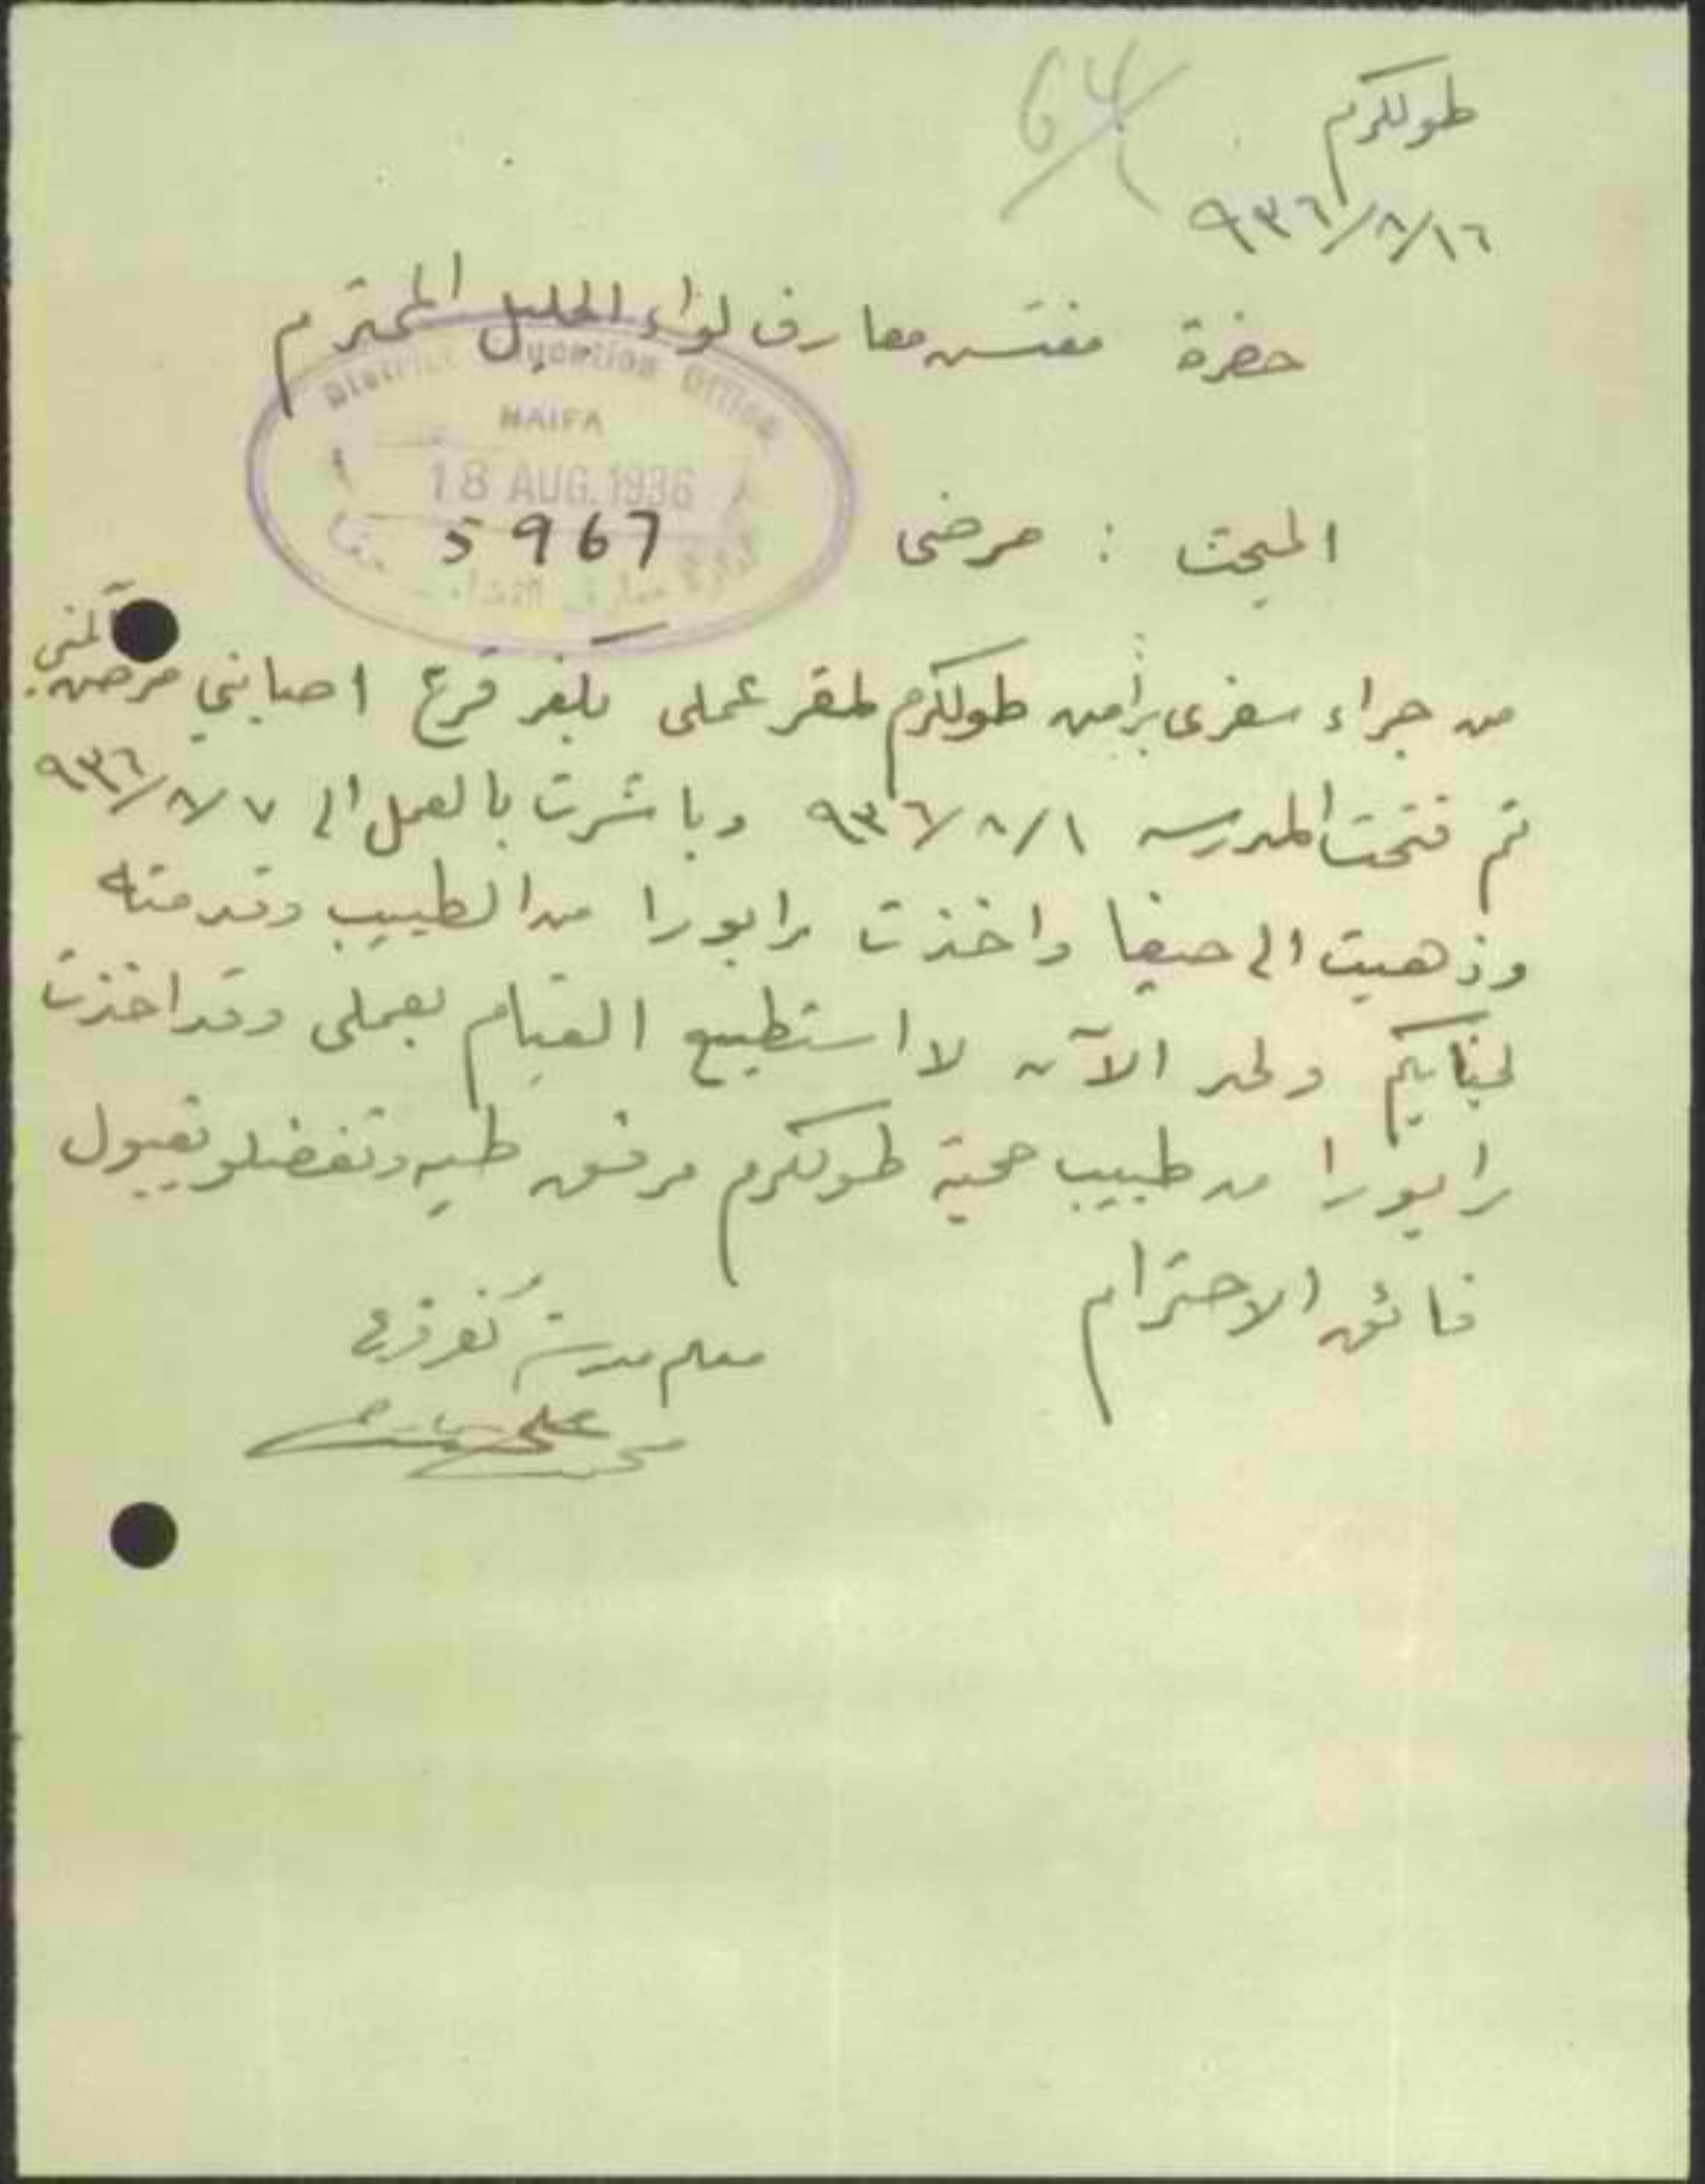 64
طولكرم
٩٣٦/٨/١٦
حضرة مفتش معارف لواء الجليل المحترم
District Education Office
HAIFA
18 AUG. 1936
5967
المبحث : مرضى
من جراء سفرى براً من طولكرم لمقر عملى بكفر قرع اصابني مرض
ثم فتحت المدرسه ٩٣٦/٨/١ وباشرت بالعمل الى ٩٣٦/٨/٧
وذهبت الى حيفا واخذت رابورا من الطبيب وقدمته
لجنابكم ولحد الآن لا استطيع القيام بعملى وقد اخذت
رابورا من طبيب صحية طولكرم مرفق طيه وتفضلو بقبول
فائق الاحترام
معلم مدرسة كفر قرع